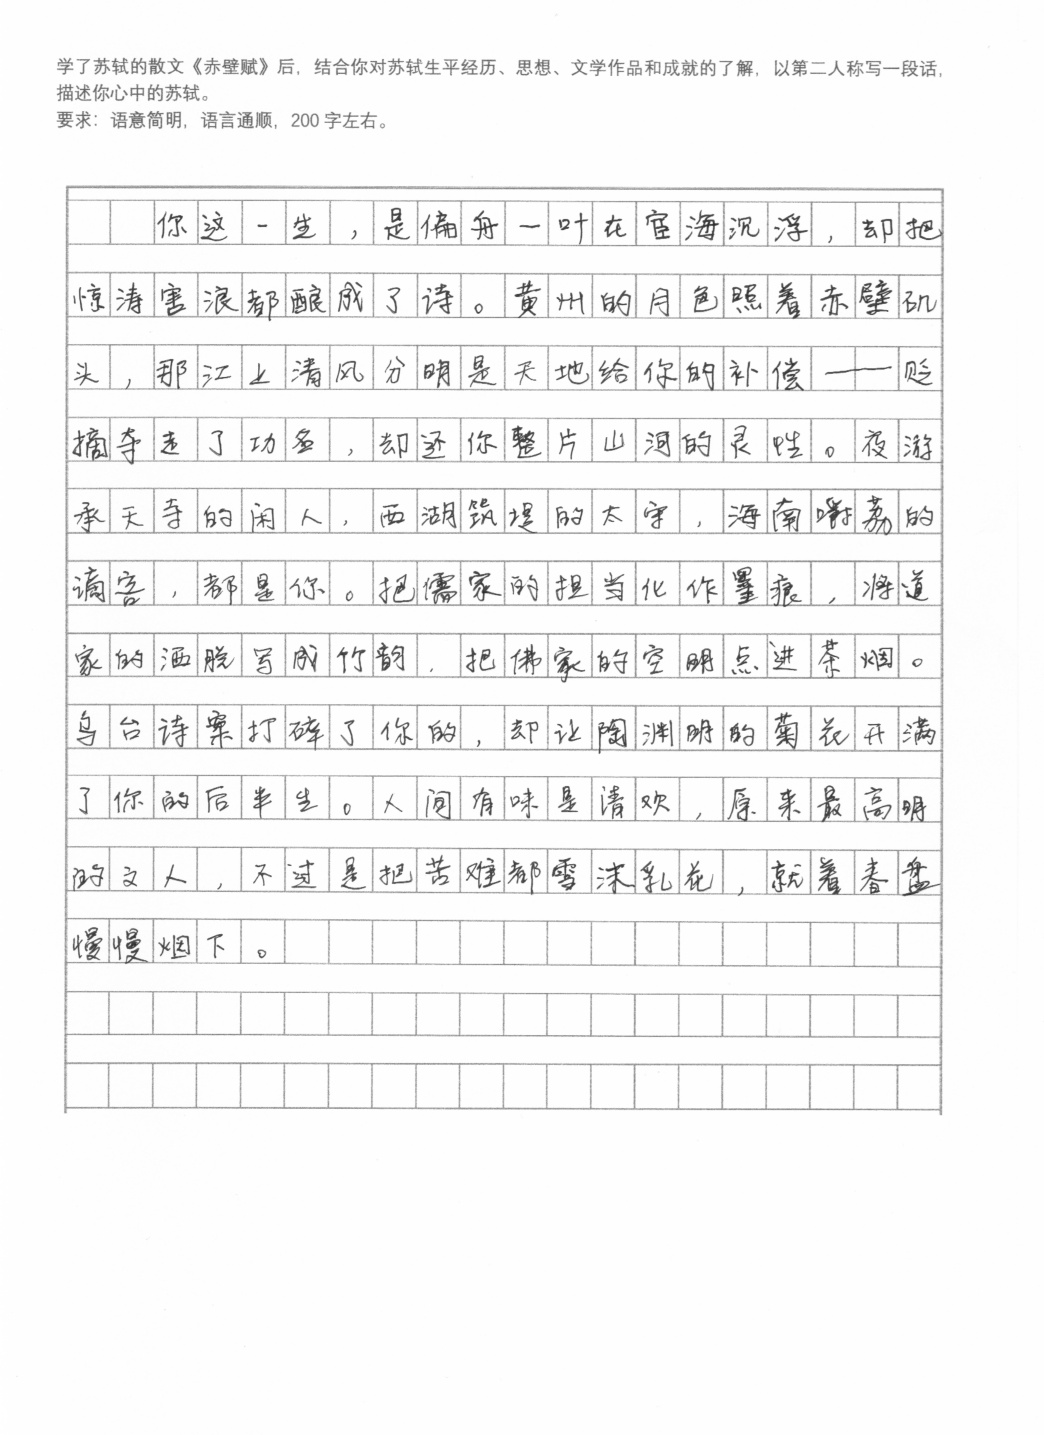 学了苏轼的散文《赤壁赋》后，结合你对苏轼生平经历、思想、文学作品和成就的了解，以第二人称写一段话，
描述你心中的苏轼。
要求：语意简明，语言通顺，200 字左右。
你这一生，是偏舟一叶在宦海沉浮，却把
惊涛害浪都酿成了诗。黄州的月色照着赤壁矶
头，那江上清风分明是天地给你的补偿——贬
摘夺走了功名，却还你整片山河的灵性。夜游
承天寺的闲人，西湖筑堤的太守，海南嚼荔的
谪客，都是你。把儒家的担当化作墨痕，将道
家的洒脱写成竹韵，把佛家的空明点进茶烟。
乌台诗案打碎了你的，却让陶渊明的菊花开满
了你的后半生。人间有味是清欢，原来最高明
的文人，不过是把苦难都雪沫乳花，就着春盘
慢慢烟下。